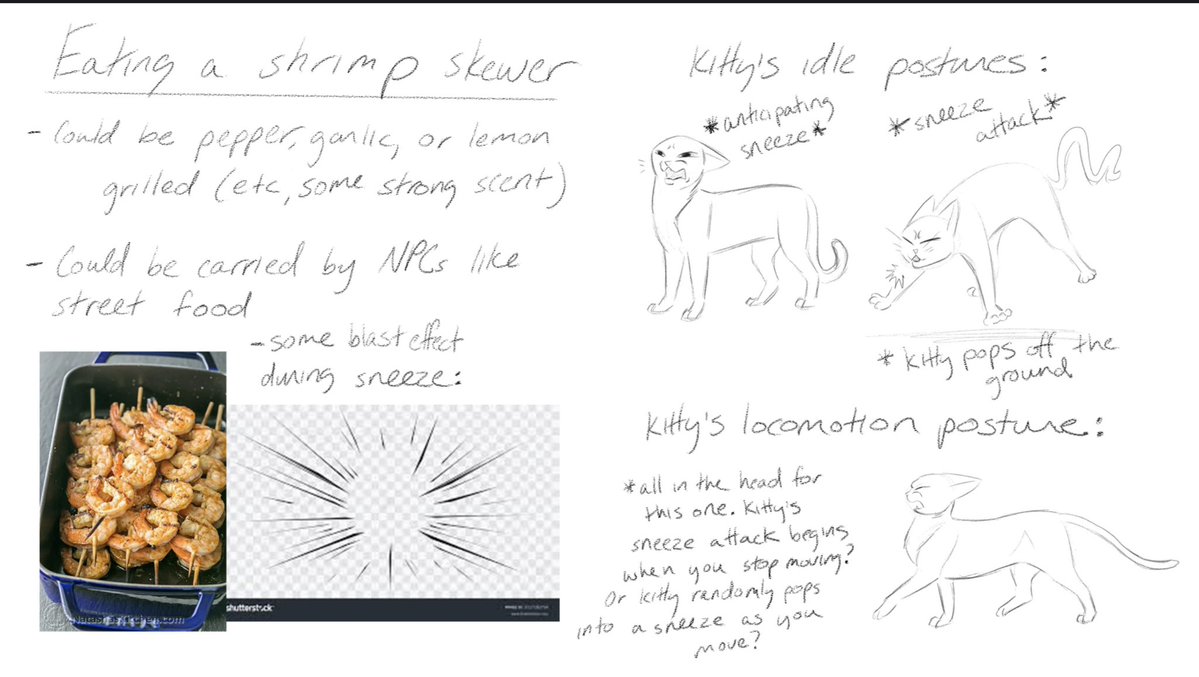 Eating a shrimp skewer
- Could be pepper, garlic, or lemon
grilled (etc, some strong scent)
- Could be carried by NPCs like
street food
- some blast effect
during sneeze:
NatashasKitchen.com
shutterstock
Kitty's idle postures:
*anticipating
sneeze*
*sneeze
attack*
* kitty pops off the
ground
Kitty's locomotion posture:
*all in the head for
this one. Kitty's
sneeze attack begins
when you stop moving?
Or kitty randomly pops
into a sneeze as you
move?